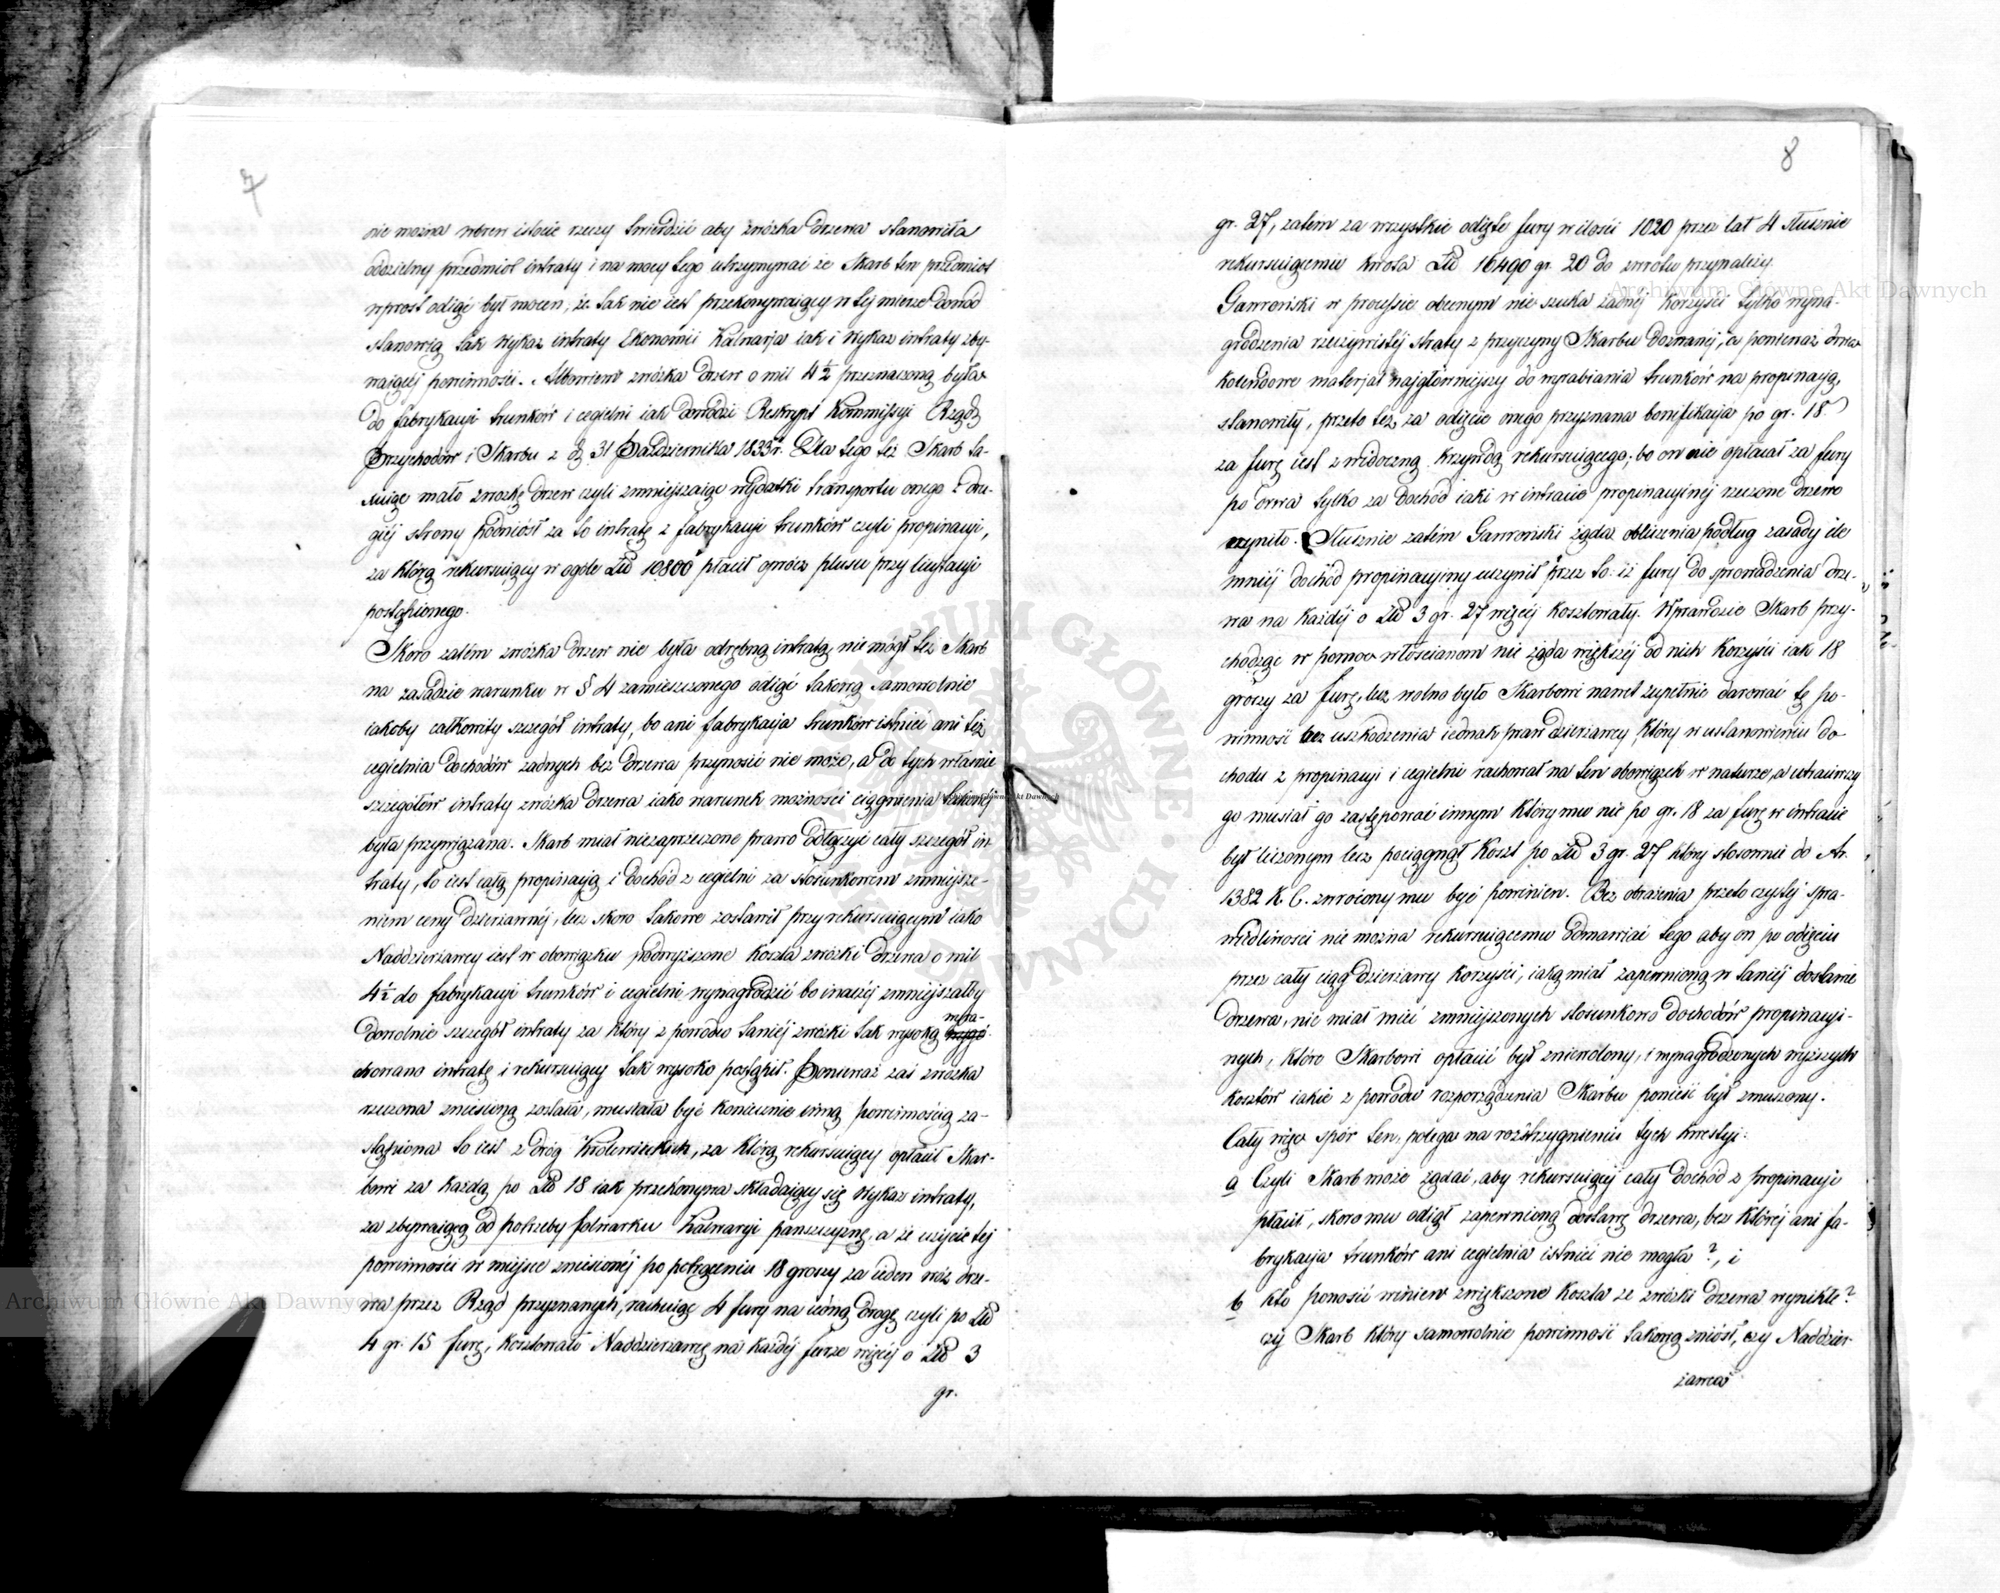 7
nie można wbrew istocie rzeczy twierdzić aby zwózka drzewa stanowiła
oddzielny przedmiot intraty i na mocy tego utrzymywać że Skarb ten przedmiot
wprost odiąć był mocen, że tak nie iest przekonywaiący w tej mierze dowód
stanowią tak Wykaz intraty Ekonomii Kalwarja iak i Wykaz intraty zby-
waiącej powinności. Albowiem zwózka drzew o mil 4½ przeznaczoną była
do fabrykacyi trunków i cegielni iak dowodzi Reskrypt Kommissyi Rządz
Przychodów i Skarbu z d. 31 Października 1833 r. Dla tego też Skarb ta-
xuiąc mało zwozkę drzew czyli zmnieyszaiąc wydatki transportu onego z dru-
giéj strony podniósł za to intratę z fabrykacyi trunków czyli propinacyi,
za którą rekursuiący w ogóle Złp 10800 płacił oprócz plusu przy licytacyi
postąpionego.
Skoro zatém zwózka drzew nie była odrębną intratą, nie mógł też Skarb
na zasadzie warunku w § 4 zamieszczonego odiąć takową samowolnie
iakoby całkowity szczegół intraty, bo ani fabrykacya trunków istnieć ani też
cegielnia dochodów żadnych bez drzewa przynosić nie może, a do tych właśnie
szczegółów intraty zwózka drzewa iako warunek możności ciągnienia takowéj
była przywiązana. Skarb miał niezaprzeczone prawo odłączyć cały szczegół in-
traty, to iest całą propinacyą i dochód z cegielni za stosunkowem zmniejsze-
niem ceny dzierżawnéj, lecz skoro takowe zostawił przy rekursuiącym iako
Naddzierżawcy iest w obowiązku podwyższone koszta zwózki drzewa o mil
4½ do fabrykacyi trunków i cegielni wynagrodzić bo inaczéj zmniejszałby
dowolnie szczegół intraty za który z powodu taniéj zwózki tak wysoką wyra-
chowano intratę i rekursuiący tak wysoko postąpił. Ponieważ zaś zwózka
rzeczona zniesioną została, musiała być koniecznie inną powinnością za-
stąpiona to iest z dróg Królewieckich, za którą rekursuiący opłacił Skar-
bowi za każdą po Złp 18 iak przekonywa składaiący się Wykaz intraty,
za zbywaiącą od potrzeby folwarku Kalwaryi pańszczyznę, a że użycie tej
powinności w miejsce zniesionéj po potrąceniu 18 groszy za ieden wóz drze-
wa przez Rząd przyznanych, rachuiąc 4 fury na iedną drogę czyli po Złp
4 gr. 15 furę, kosztowało Naddzierżawcę na każdéj furze więcéj o Złp 3
gr.
8
gr. 27, zatem za wszystkie odięte fury w ilości 1020 przez lat 4 słusznie
rekursuiącemu kwota Złp 16490 gr. 20 do zwrotu przynależy.
Gawroński w procesie obecnym nie szuka żadnéj korzyści tylko wyna-
grodzenia rzeczywistéj straty z przyczyny Skarbu doznanéj, a ponieważ drwa
kolendowe materjał najgłówniejszy do wyrabiania trunków na propinacyą,
stanowiły, przeto też za odięcie onego przyznana bonifikacja po gr. 18
za furę iest z widoczną krzywdą rekursuiącego; bo on nie opłacał za fury
po drwa tylko za dochód iaki w intracie propinacyinéj rzeczone drzewo
czyniło. Słusznie zatém Gawroński żąda obliczenia podług zasady ile
mniéj dochód propinacyiny uczynił przez to: iż fury do sprowadzenia drze-
wa na każdéj o Złp 3 gr. 27 więcéj kosztowały. Wprawdzie Skarb przy-
chodząc w pomoc włościanom nie żąda większéj od nich korzyści iak 18
groszy za furę, lecz wolno było Skarbowi nawet zupełnie darować tę po-
winność bez uszkodzenia iednak praw dzierżawcy, który w ustanowieniu do-
chodu z propinacyi i cegielni rachował na ten obowiązek w naturze, a utraciwszy
go musiał go zastępować innym który mu nie po gr. 18 za furę w intracie
był liczonym lecz pociągnął koszt po Złp 3 gr. 27 któréj stosownie do Ar.
1382 K. C. zwrócony mu być powinien. Bez obrażenia przeto czystéj spra-
wiedliwości nie można rekursuiącemu odmawiać tego aby on po odięciu
przez cały ciąg dzierżawy korzyści, iaką miał zapewnioną w taniéj dostawie
drzewa, nie miał mieć zmniejszonych stosunkowo dochodów propinacyi-
nych, które Skarbowi opłacić był zniewolony, i wynagrodzonych wyższych
kosztów iakie z powodu rozporządzenia Skarbu ponieść był zmuszony.
Cały więc spór ten, polega na rozstrzygnieniu tych kwestyi:
a Czyli Skarb może żądać, aby rekursuiący cały dochód z propinacyi
płacił, skoro mu odiął zapewnioną dostawę drzewa, bez któréj ani fa-
brykacya trunków ani cegielnia istnieć nie mogła?, i
b kto ponosić winien zwiększone koszta ze zwózki drzewa wynikłe?
czy Skarb który samowolnie powinność takową zniósł, czy Naddzier-
żawca
Archiwum Główne Akt Dawnych